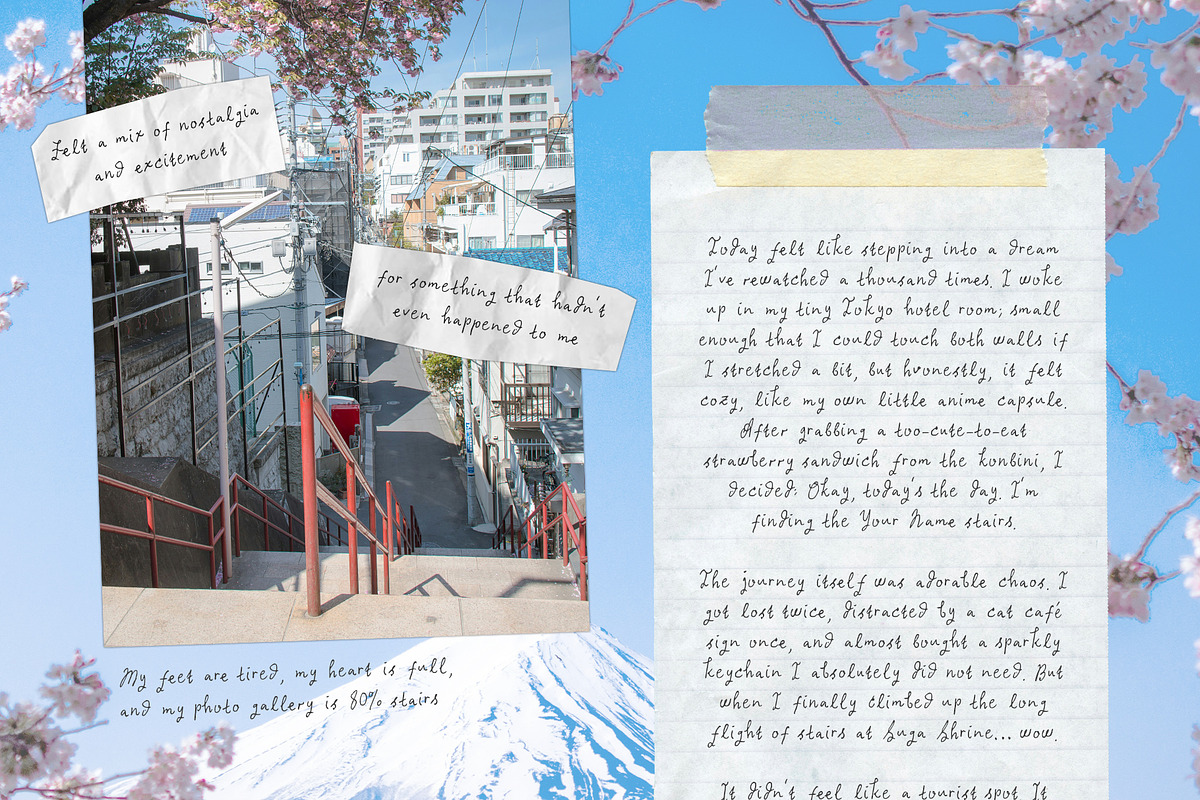 Felt a mix of nostalgia
and excitement
for something that hadn't
even happened to me
My feet are tired, my heart is full,
and my photo gallery is 80% stairs
Today felt like stepping into a dream
I've rewatched a thousand times. I woke
up in my tiny Tokyo hotel room; small
enough that I could touch both walls if
I stretched a bit, but hvonestly, it felt
cozy, like my own little anime capsule.
After grabbing a too-cute-to-eat
strawberry sandwich from the konbini, I
decided: Okay, today's the day. I'm
finding the Your Name stairs.
The journey itself was adorable chaos. I
got lost twice, distracted by a cat café
sign once, and almost bought a sparkly
keychain I absolutely did not need. But
when I finally climbed up the long
flight of stairs at Suga Shrine... wow.
It didn't feel like a tourist spot It